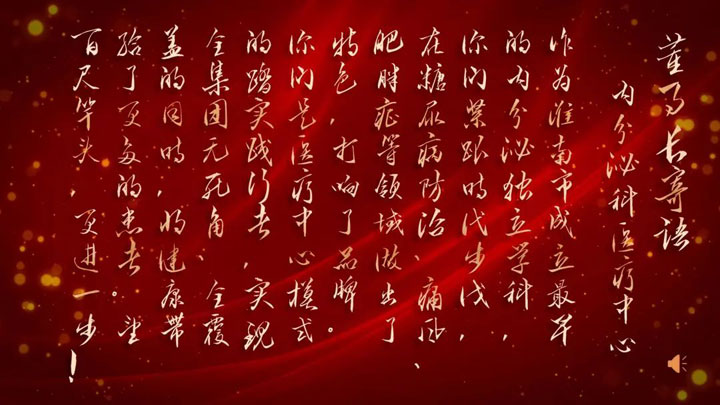 董事长寄语
内分泌科医疗中心
作为淮南市成立最早
的内分泌独立学科，
你们紧跟时代步伐，
在糖尿病防治、痛风、
肥胖症等领域做出了
特色，打响了品牌。
你们是医疗中心模式
的踏实践行者，实现
全集团无死角、全覆
盖的同时，将健康带
给了更多的患者。望
百尺竿头，更进一步！